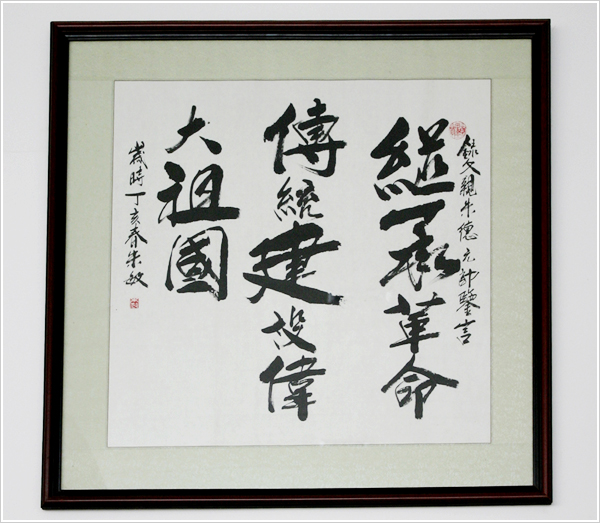 錄父親朱德元帥鑒言
繼承革命
傳統建設偉
大祖國
歲時丁亥春朱敏